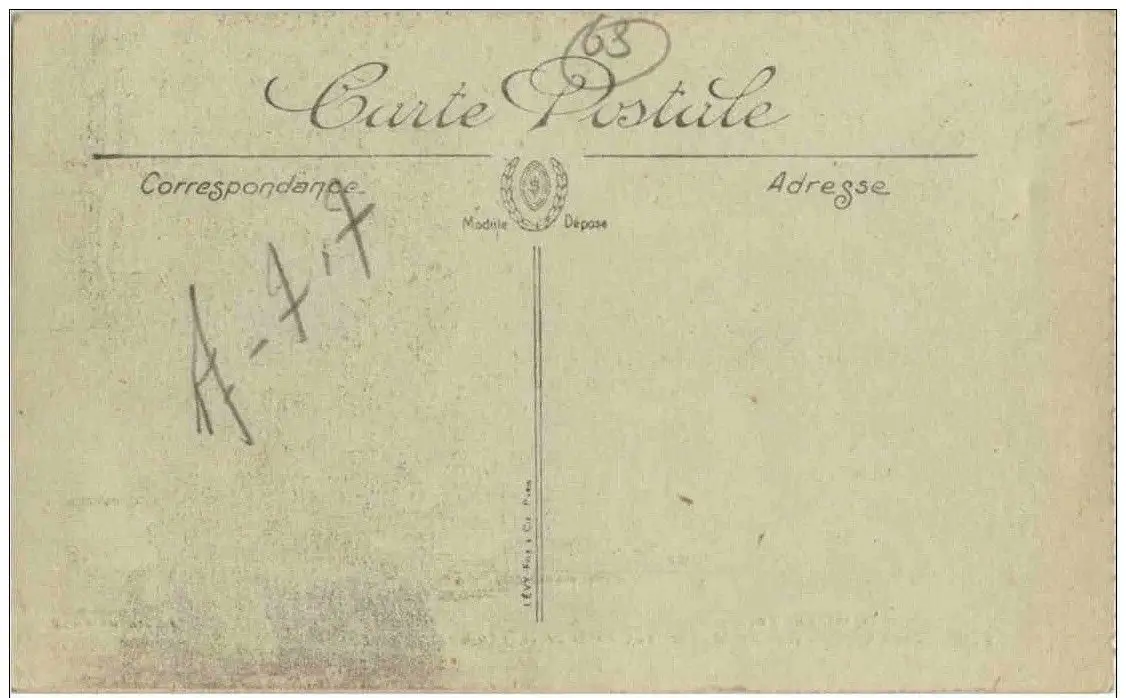 63
Carte Postale
Correspondance
Adresse
Modèle Déposé
LÉVY Fils & Cie Paris